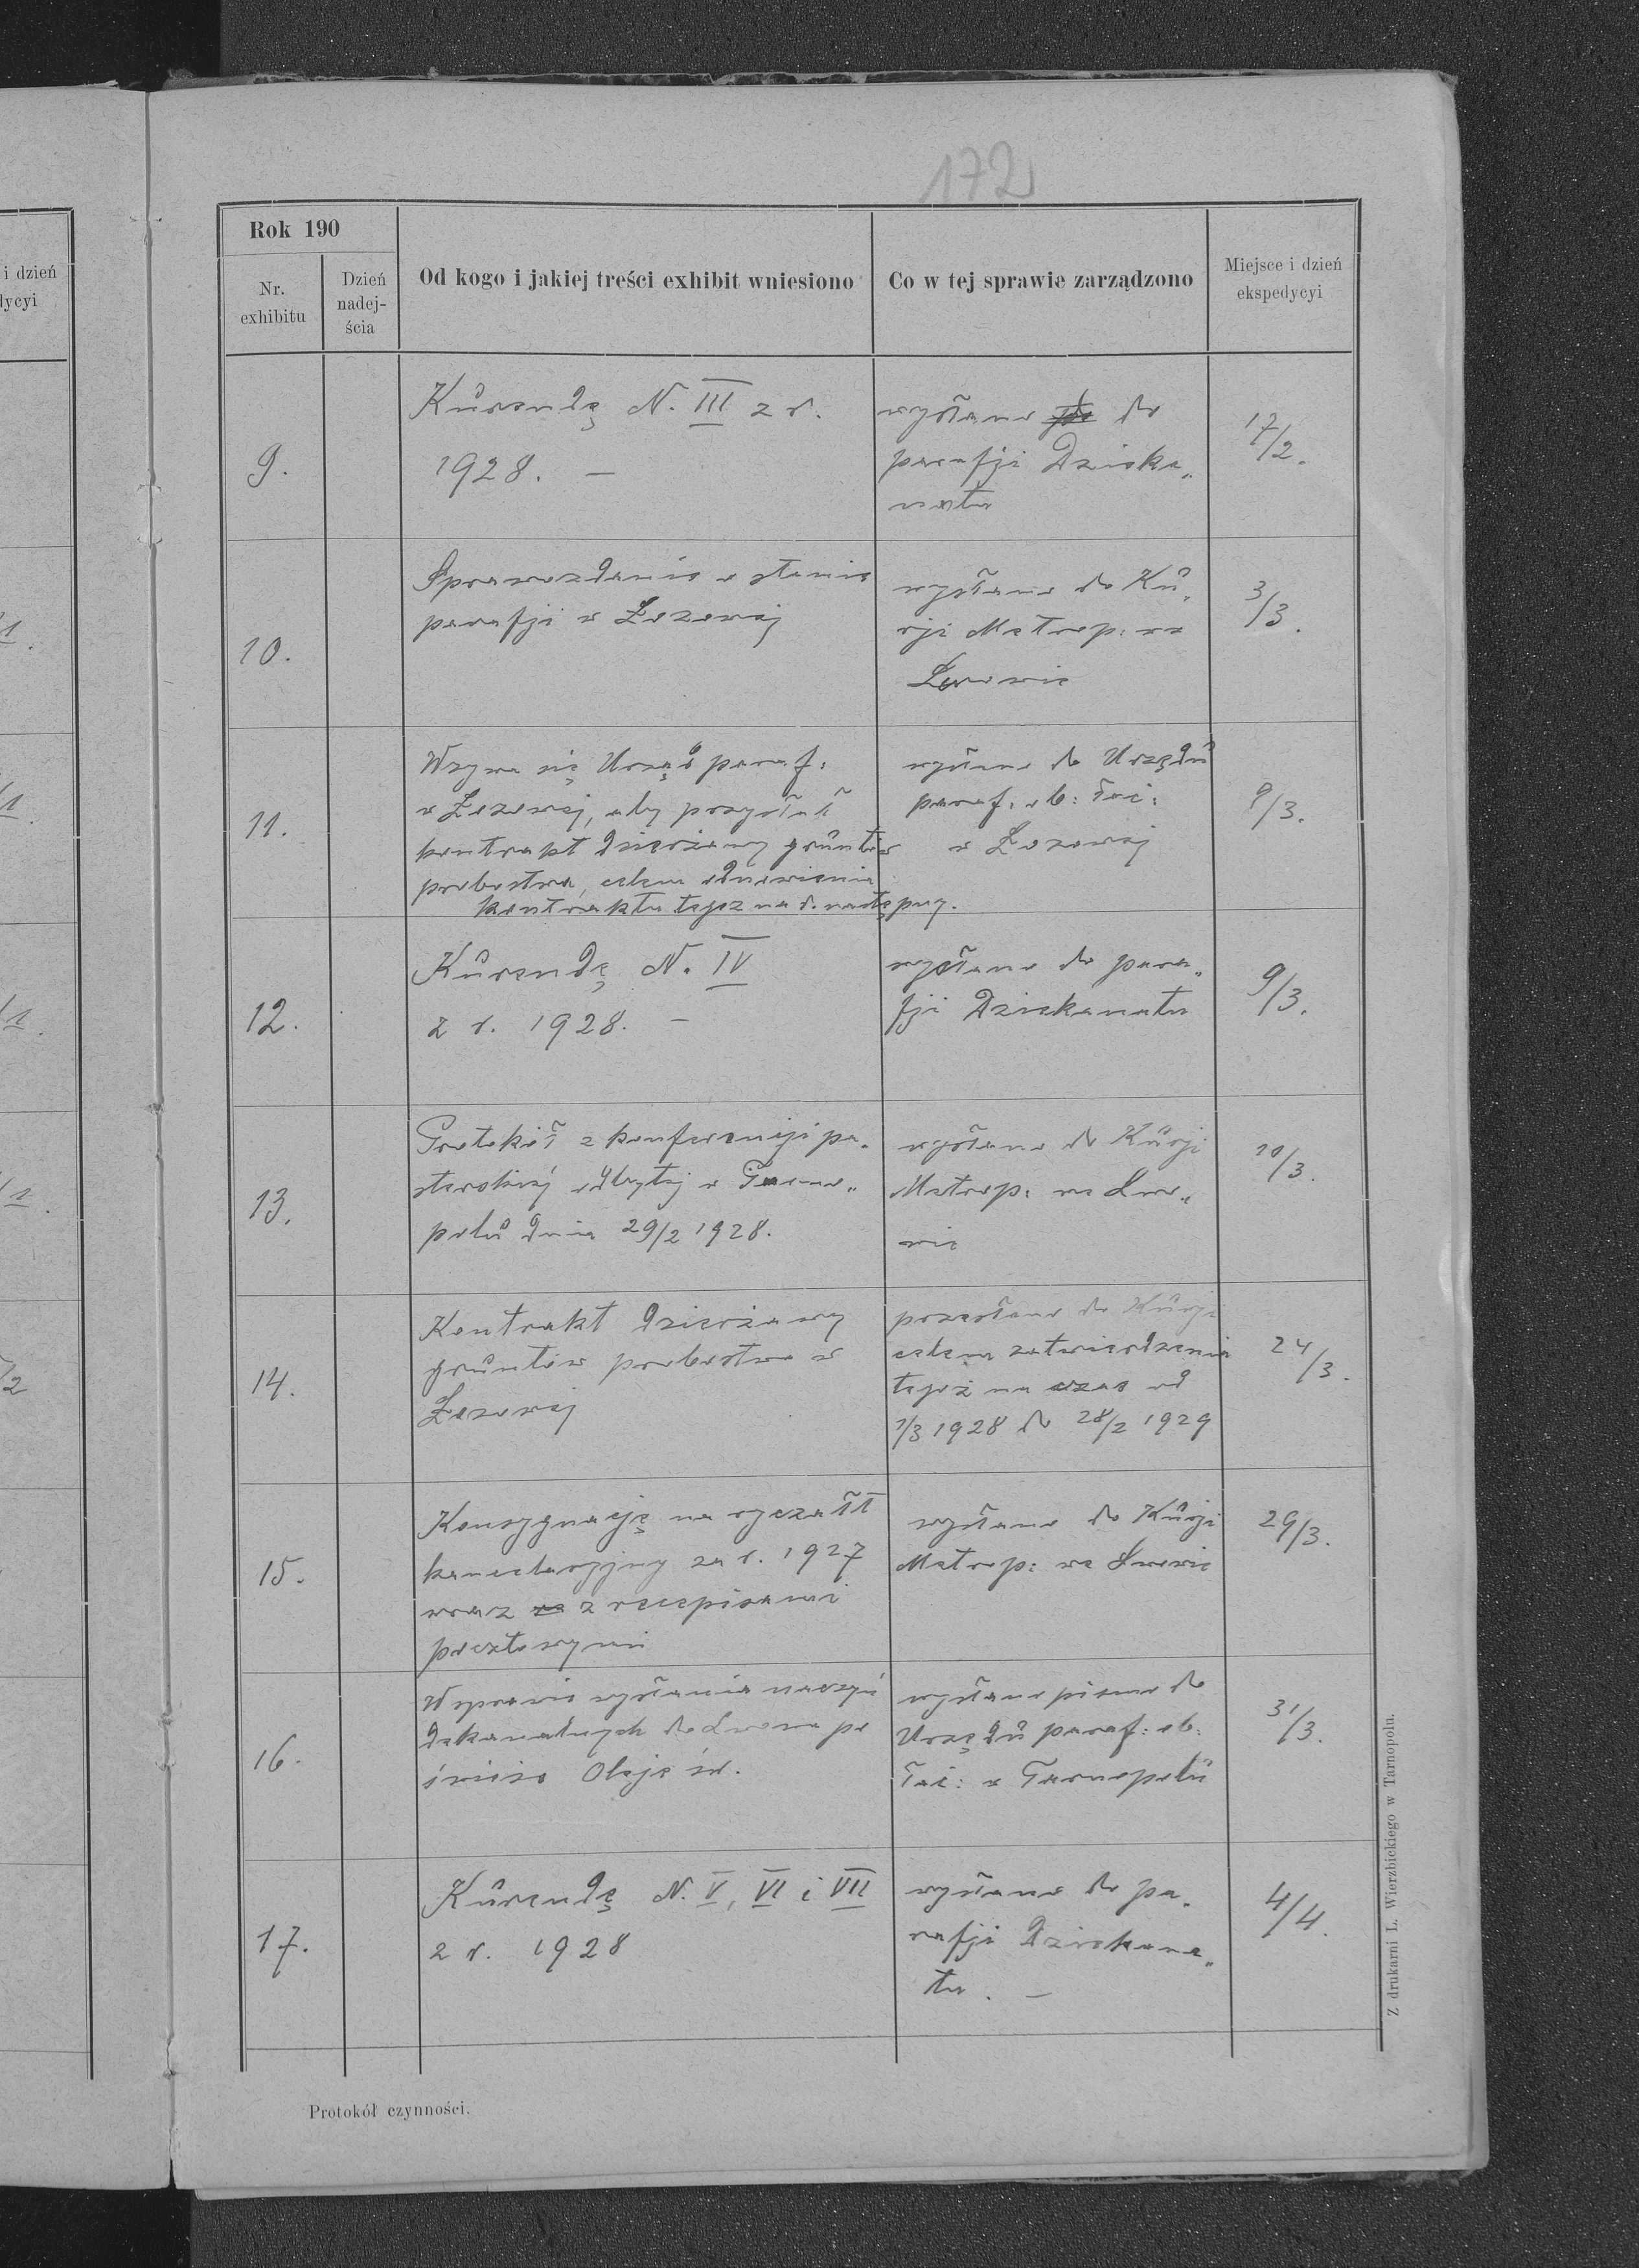 172
Rok 190
Nr. exhibitu
Dzień nadej-ścia
Od kogo i jakiej treści exhibit wniesiono
Co w tej sprawie zarządzono
Miejsce i dzień ekspedycyi
i dzień
dycyi
9.
Kurendę N. III z r.
1928. —
wysłano do
parafji Dzieka„
natu
17/2.
10.
Sprawozdanie o stanie
parafji w Łozowej
wysłano do Ku„
rji Metrop: we
Lwowie
3/3.
11.
Wzywa się Urząd paraf:
w Łozowej, aby przysłał
kontrakt dzierżawy gruntów
probostwa, celem odnowienia
kontraktu tegoż na r. następny.
wysłano do Urzędu
paraf: ob: łac:
w Łozowej
8/3.
12.
Kurendę N. IV
z r. 1928. —
wysłano do para„
fji Dziekanatu
9/3.
13.
Protokół z konferencji pa„
sterskiej odbytej w Tarno„
polu dnia 29/2 1928.
wysłano do Kurji
Metrop: we Lwo„
wie
10/3.
14.
Kontrakt dzierżawy
gruntów probostwa w
Łozowej
przesłano do Kurji
celem zatwierdzenia
tegoż na czas od
1/3 1928 do 28/2 1929
24/3.
15.
Konsygnację na ryczałt
kancelaryjny za r. 1927
wraz z recepisami
pocztowymi
wysłano do Kurji
Metrop: we Lwowie
29/3.
16.
W sprawie wysłania naczyń
dekanalnych do Lwowa po
świeże Oleje św.
wysłano pismo do
Urzędu paraf: ob:
łac: w Tarnopolu
31/3.
17.
Kurendę N. V, VI i VII
z r. 1928
wysłano do pa„
rafji Dziekana„
tu. —
4/4.
Protokół czynności.
Z drukarni L. Wierzbickiego w Tarnopolu.